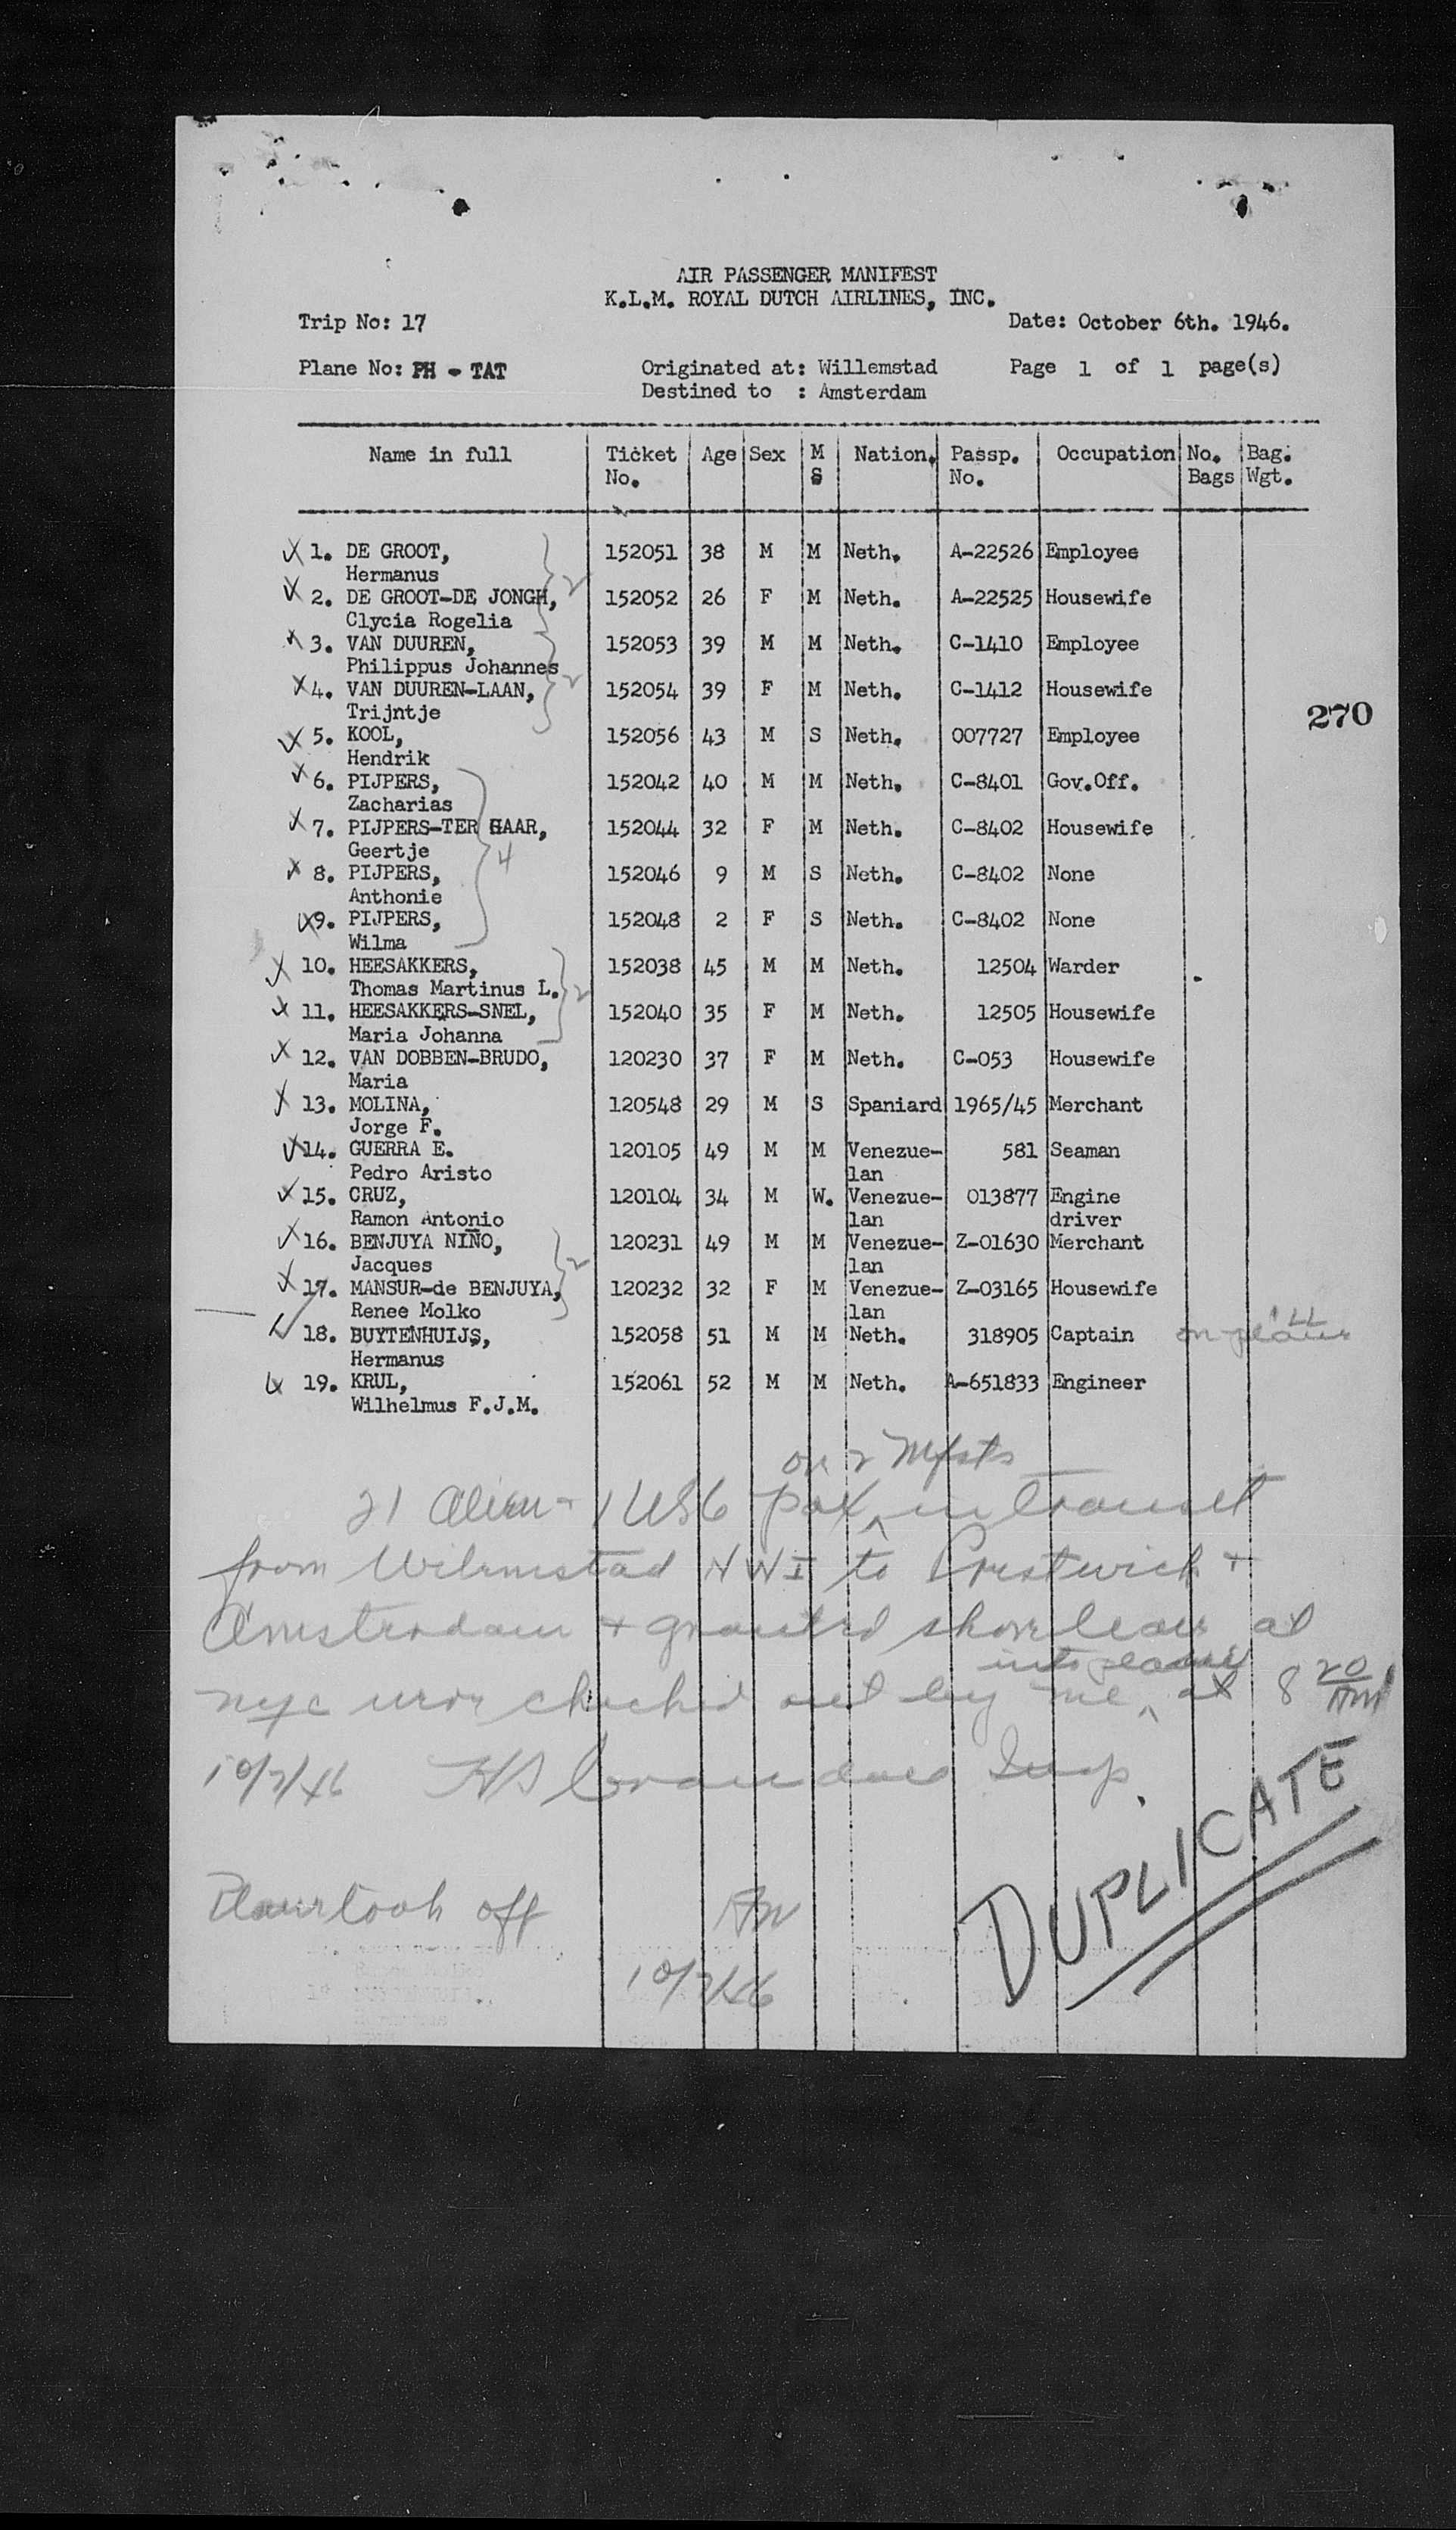 AIR PASSENGER MANIFEST
K.L.M. ROYAL DUTCH AIRLINES, INC.
Trip No: 17 Date: October 6th. 1946.
Plane No: PH - TAT Originated at: Willemstad Page 1 of 1 page(s)
Destined to : Amsterdam
Name in full Ticket Age Sex M Nation. Passp. Occupation No. Bag.
No. S No. Bags Wgt.
1. DE GROOT, 152051 38 M M Neth. A-22526 Employee
Hermanus
2. DE GROOT-DE JONGH, 152052 26 F M Neth. A-22525 Housewife
Clycia Rogelia
3. VAN DUUREN, 152053 39 M M Neth. C-1410 Employee
Philippus Johannes
4. VAN DUUREN-LAAN, 152054 39 F M Neth. C-1412 Housewife
Trijntje
270
5. KOOL, 152056 43 M S Neth. 007727 Employee
Hendrik
6. PIJPERS, 152042 40 M M Neth. C-8401 Gov.Off.
Zacharias
7. PIJPERS-TER HAAR, 152044 32 F M Neth. C-8402 Housewife
Geertje 4
8. PIJPERS, 152046 9 M S Neth. C-8402 None
Anthonie
9. PIJPERS, 152048 2 F S Neth. C-8402 None
Wilma
10. HEESAKKERS, 152038 45 M M Neth. 12504 Warder
Thomas Martinus L. 2
11. HEESAKKERS-SNEL, 152040 35 F M Neth. 12505 Housewife
Maria Johanna
12. VAN DOBBEN-BRUDO, 120230 37 F M Neth. C-053 Housewife
Maria
13. MOLINA, 120548 29 M S Spaniard 1965/45 Merchant
Jorge F.
14. GUERRA E. 120105 49 M M Venezue- 581 Seaman
Pedro Aristo lan
15. CRUZ, 120104 34 M W. Venezue- 013877 Engine
Ramon Antonio lan driver
16. BENJUYA NIÑO, 120231 49 M M Venezue- Z-01630 Merchant
Jacques 2 lan
17. MANSUR-de BENJUYA, 120232 32 F M Venezue- Z-03165 Housewife
Renee Molko lan
18. BUYTENHUIJS, 152058 51 M M Neth. 318905 Captain
Hermanus
19. KRUL, 152061 52 M M Neth. A-651833 Engineer
Wilhelmus F.J.M.
on 2 Mfsts
21 Alien + 1 USC pax in transit
from Wilemstad NWI to Prestwich +
Amsterdam + granted shore leave at
into plane
nyc were checked out by me at 8 20 AM
10/7/46 Insp.
Plane took off AM
10/7/46
DUPLICATE